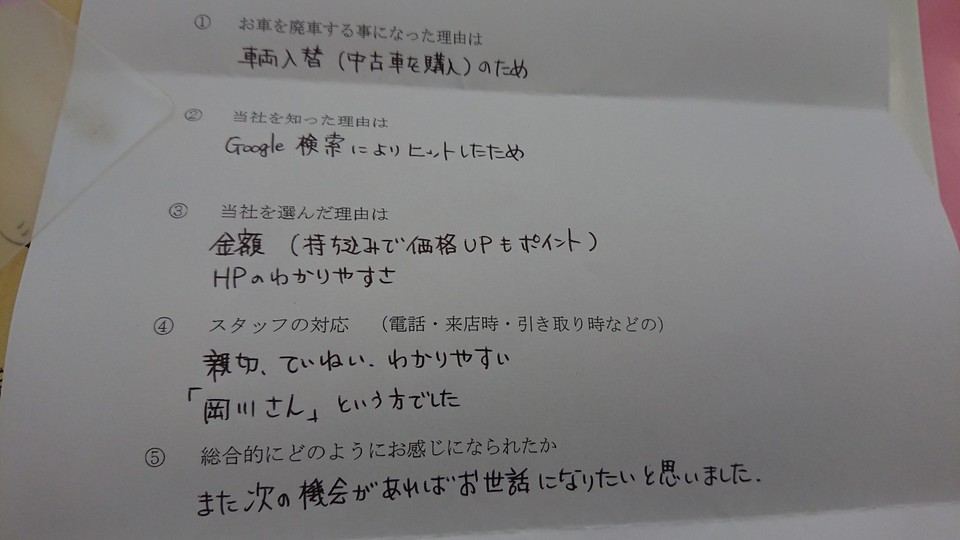 ① お車を廃車する事になった理由は
車両入替（中古車を購入）のため
② 当社を知った理由は
Google 検索によりヒットしたため
③ 当社を選んだ理由は
金額（持ち込みで価格UPもポイント）
HPのわかりやすさ
④ スタッフの対応 （電話・来店時・引き取り時などの）
親切、ていねい、わかりやすい
「岡川さん」という方でした
⑤ 総合的にどのようにお感じになられたか
また次の機会があればお世話になりたいと思いました.